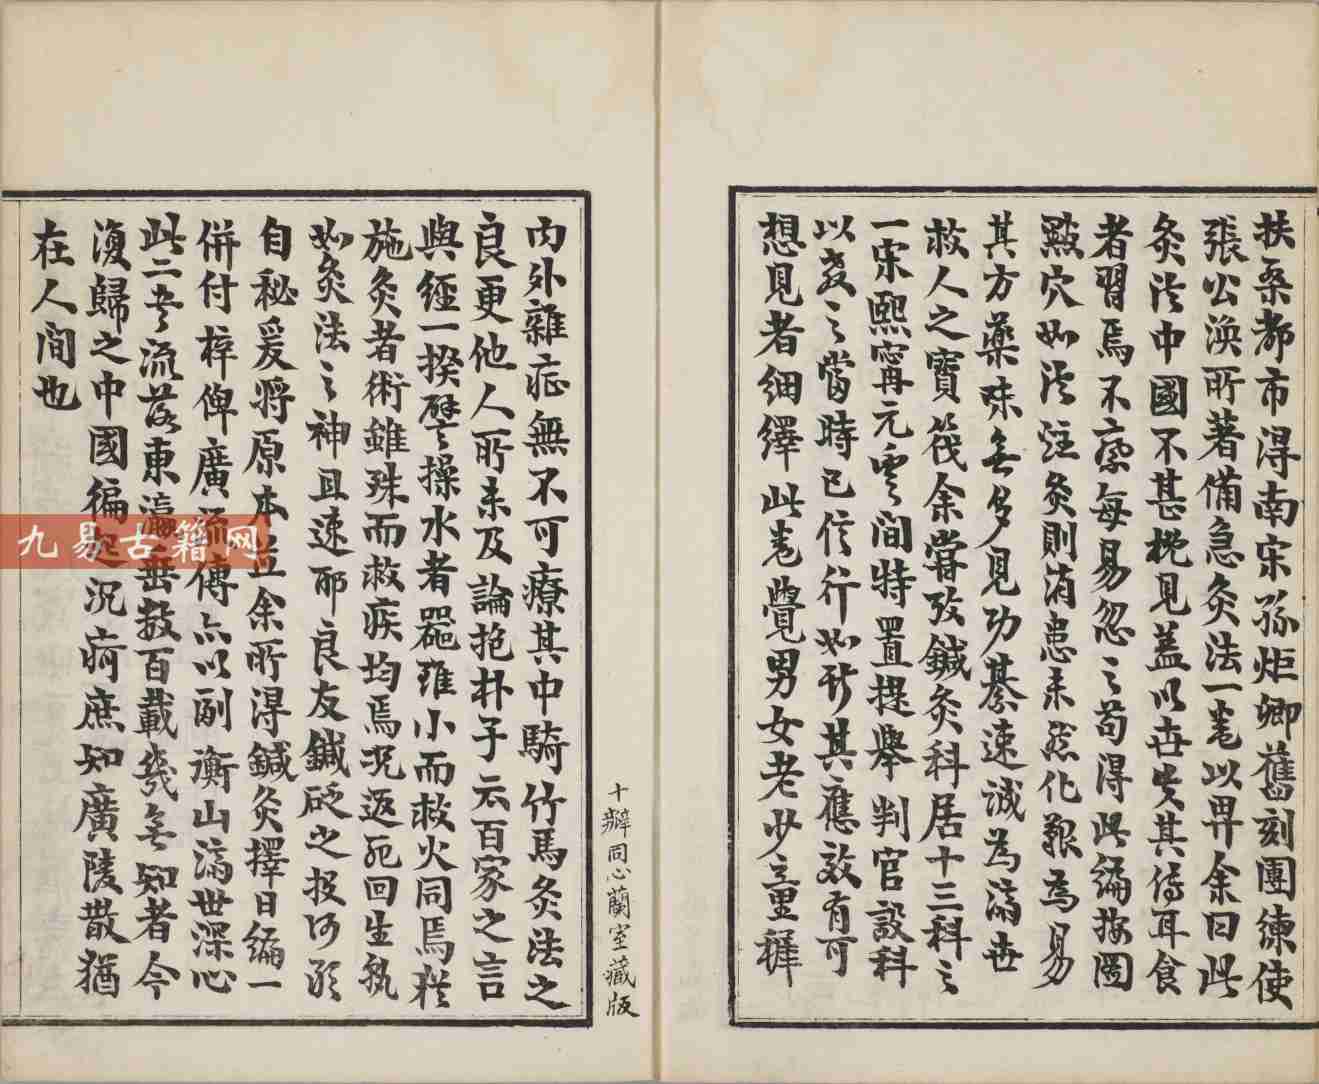 扶桑都市得南宋孫炬卿舊刻團練使
張公渙所著備急灸法一卷以畀余曰此
灸法中國不甚概見蓋以世失其傳耳食
者習焉不察每易忽之苟得此編按圖
點穴如法注灸則消患未然化艱為易
其方藥味無多見功綦速誠為濟世
救人之寶筏余嘗攷鍼灸科居十三科之
一宋熙甯元豐間特置提舉判官設科
以教之當時已信行如斯其應效有可
想見者細繹此卷覺男女老少童稚
内外雜症無不可療其中騎竹馬灸法之
良更他人所未及論抱朴子云百家之言
與經一揆譬操水者器雖小而救火同焉猶
施灸者術雖殊而救疾均焉況返死回生孰
如灸法之神且速耶良友鍼砭之投何敢
自秘爰將原本並余所得鍼灸擇日編一
併付梓俾廣流傳亦以副衡山濟世深心
此二書流落東瀛垂數百載幾無知者今
復歸之中國徧起沉疴庶知廣陵散猶
在人間也
十瓣同心蘭室藏版
九易古籍网